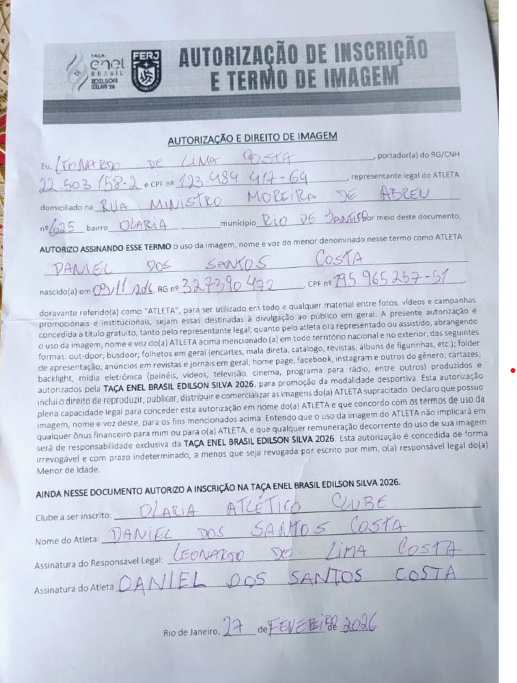 TAÇA
enel
BRASIL
EDILSON
SILVA'26
FERJ
AUTORIZAÇÃO DE INSCRIÇÃO
E TERMO DE IMAGEM
AUTORIZAÇÃO E DIREITO DE IMAGEM
Eu, LEONARDO DE LIMA COSTA, portador(a) do RG/CNH
22 503 158-2 e CPF nº 123 484 417-64, representante legal do ATLETA
domiciliado na RUA MINISTRO MOREIRA DE ABREU
nº 625 bairro OLARIA município RIO DE por meio deste documento,
AUTORIZO ASSINANDO ESSE TERMO o uso da imagem, nome e voz do menor denominado nesse termo como ATLETA
DANIEL DOS SANTOS COSTA
nascido(a) em RG nº 327390472, CPF nº 195 965 257-51
doravante referido(a) como "ATLETA", para ser utilizado em todo e qualquer material entre fotos, vídeos e campanhas
promocionais e institucionais, sejam essas destinadas à divulgação ao público em geral. A presente autorização é
concedida a título gratuito, tanto pelo representante legal, quanto pelo atleta ora representado ou assistido, abrangendo
o uso da imagem, nome e voz do(a) ATLETA acima mencionado(a) em todo território nacional e no exterior, das seguintes
formas: out-door; busdoor; folhetos em geral (encartes, mala direta, catálogo, revistas, álbuns de figurinhas, etc.); folder
de apresentação, anúncios em revistas e jornais em geral, home page, facebook, instagram e outros do gênero; cartazes;
backlight, mídia eletrônica (painéis, vídeos, televisão, cinema, programa para rádio, entre outros) produzidos e
autorizados pela TAÇA ENEL BRASIL EDILSON SILVA 2026, para promoção da modalidade desportiva. Esta autorização
inclui o direito de reproduzir, publicar, distribuir e comercializar as imagens do(a) ATLETA supracitado. Declaro que possuo
plena capacidade legal para conceder esta autorização em nome do(a) ATLETA e que concordo com os termos de uso da
imagem, nome e voz deste, para os fins mencionados acima. Entendo que o uso da imagem do ATLETA não implicará em
qualquer ônus financeiro para mim ou para o(a) ATLETA, e que qualquer remuneração decorrente do uso de sua imagem
será de responsabilidade exclusiva da TAÇA ENEL BRASIL EDILSON SILVA 2026. Esta autorização é concedida de forma
irrevogável e com prazo indeterminado, a menos que seja revogada por escrito por mim, o(a) responsável legal do(a)
Menor de Idade.
AINDA NESSE DOCUMENTO AUTORIZO A INSCRIÇÃO NA TAÇA ENEL BRASIL EDILSON SILVA 2026.
Clube a ser inscrito: OLARIA ATLÉTICO CLUBE
Nome do Atleta: DANIEL DOS SANTOS COSTA
Assinatura do Responsável Legal: LEONARDO DE LIMA COSTA
Assinatura do Atleta DANIEL DOS SANTOS COSTA
Rio de Janeiro, 27 de FEVEREIRO de 2026